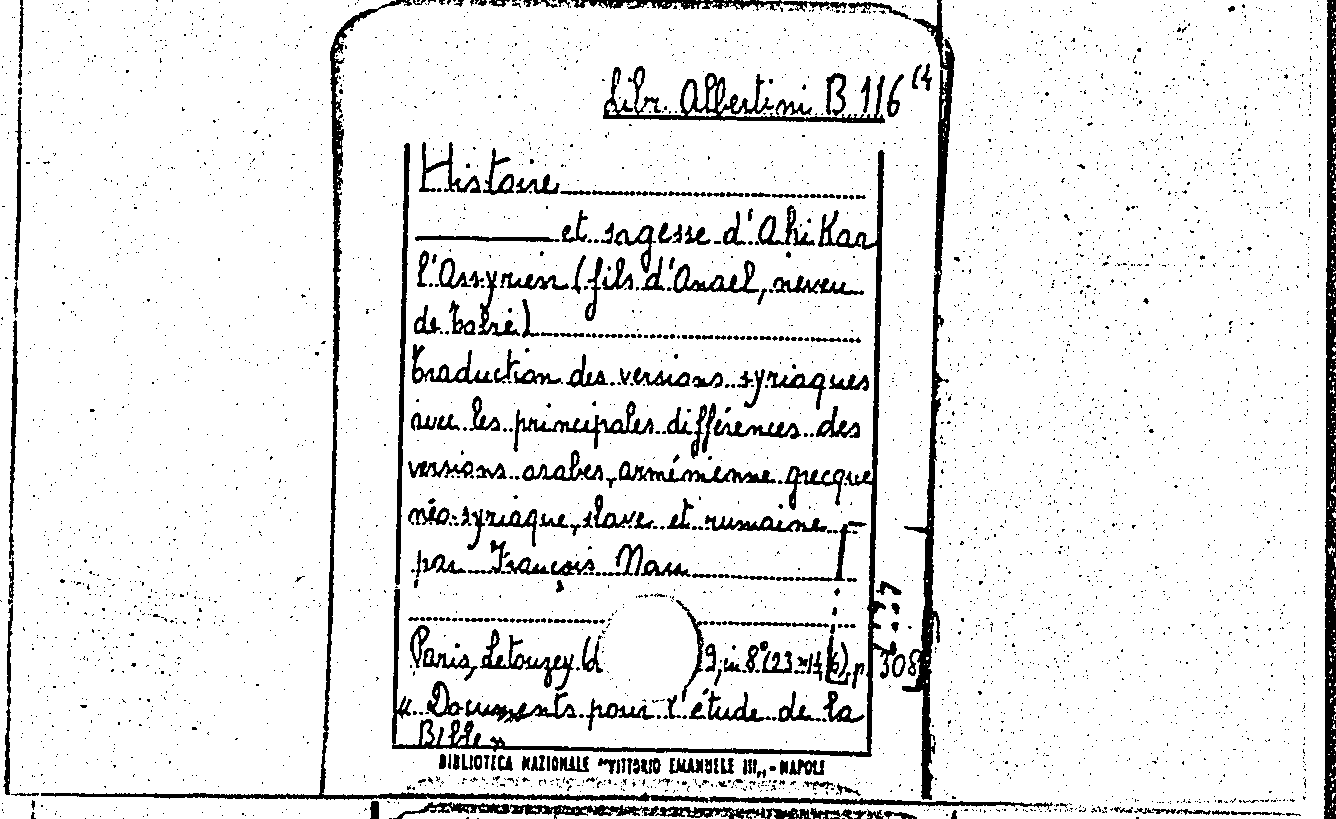 Libr. Albertini B 116 (4
Histoire
et sagesse d'Ahikar
l'Assyrien (fils d'Anael, neveu
de Tobie)
Traduction des versions syriaques
avec les principales différences des
versions arabes, arménienne grecque
néo-syriaque, slave et rumaine
par François Nau
Paris, Letouzey 9, in 8° (23 x 14, 6), p. 308
« Documents pour l'étude de la
Bible »
BIBLIOTECA NAZIONALE "VITTORIO EMANUELE III„ - NAPOLI